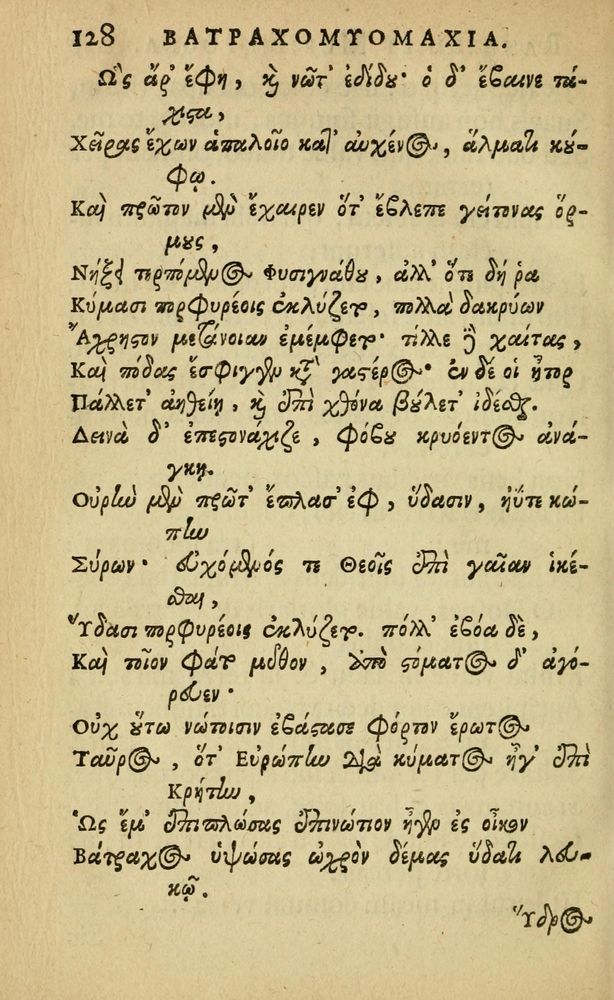 128 ΒΑΤΡΑΧΟΜΥΟΜΑΧΙΑ.
Ὣς ἄρ' ἔφη, καὶ νῶτ' ἐδίδου· ὁ δ' ἔβαινε τά-
χιστα,
Χεῖρας ἔχων ἁπαλοῖο κατ' αὐχένος, ἅλματι κού-
φῳ.
Καὶ πρῶτον μὲν ἔχαιρεν ὅτ' ἔβλεπε γείτονας ὅρ-
μους,
Νήξει τερπόμενος Φυσιγνάθου, ἀλλ' ὅτε δή ῥα
Κύμασι πορφυρέοις ἐκλύζετο, πολλὰ δακρύων
Ἄχρηστον μετάνοιαν ἐμέμφετο· τίλλε δὲ χαίτας,
Καὶ πόδας ἔσφιγγεν κατὰ γαστέρος· ἐν δέ οἱ ἦτορ
Πάλλετ' ἀηθείη, καὶ ἐπὶ χθόνα βούλετ' ἰδέσθαι.
Δεινὰ δ' ἐπεστονάχιζε, φόβου κρυόεντος ἀνά-
γκη.
Οὐρὴν μὲν πρῶτ' ἔπλασ' ἐφ, ὕδασιν, ἠΰτε κώ-
πην
Σύρων· εὐχόμενός τε Θεοῖς ἐπὶ γαῖαν ἱκέ-
σθαι,
Ὕδασι πορφυρέοις ἐκλύζετο. πόλλ' ἐβόα δὲ,
Καὶ τοῖον φάτο μῦθον, ἀπὸ στόματος δ' ἀγό-
ρευεν·
Οὐχ οὕτω νώτοισιν ἐβάστασε φόρτον ἔρωτος
Ταῦρος, ὅτ' Εὐρώπην διὰ κύματος ἦγ' ἐπὶ
Κρήτην,
Ὡς ἔμ' ἐπιπλώσας ἐπινώτιον ἦγεν ἐς οἶκον
Βάτραχος ὑψώσας ὠχρὸν δέμας ὕδατι λευ-
κῷ.
Ὕδρος